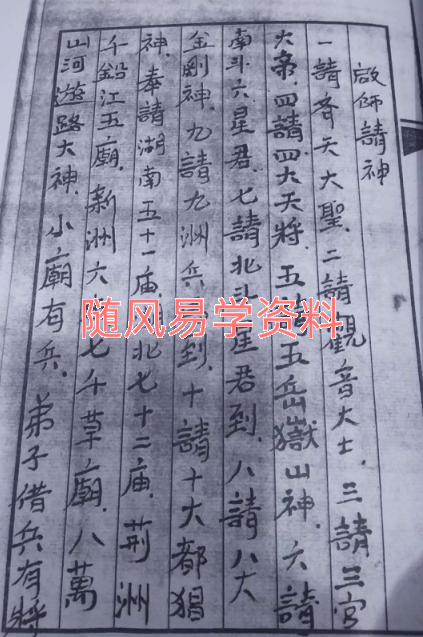 啟師請神
一請齐天大聖．二請觀音大士．三請三官
大帝．四請四大天將．五請五岳嶽山神．六請
南斗六星君．七請北斗星君到．八請八大
金剛神．九請九洲兵到．十請十大都猖
神．奉請湖南五十一庙北七十二庙．荊洲
千鉛江五廟．新洲六七千草廟．八萬
山河遊路大神．小廟有兵．弟子借兵有將
随风易学资料